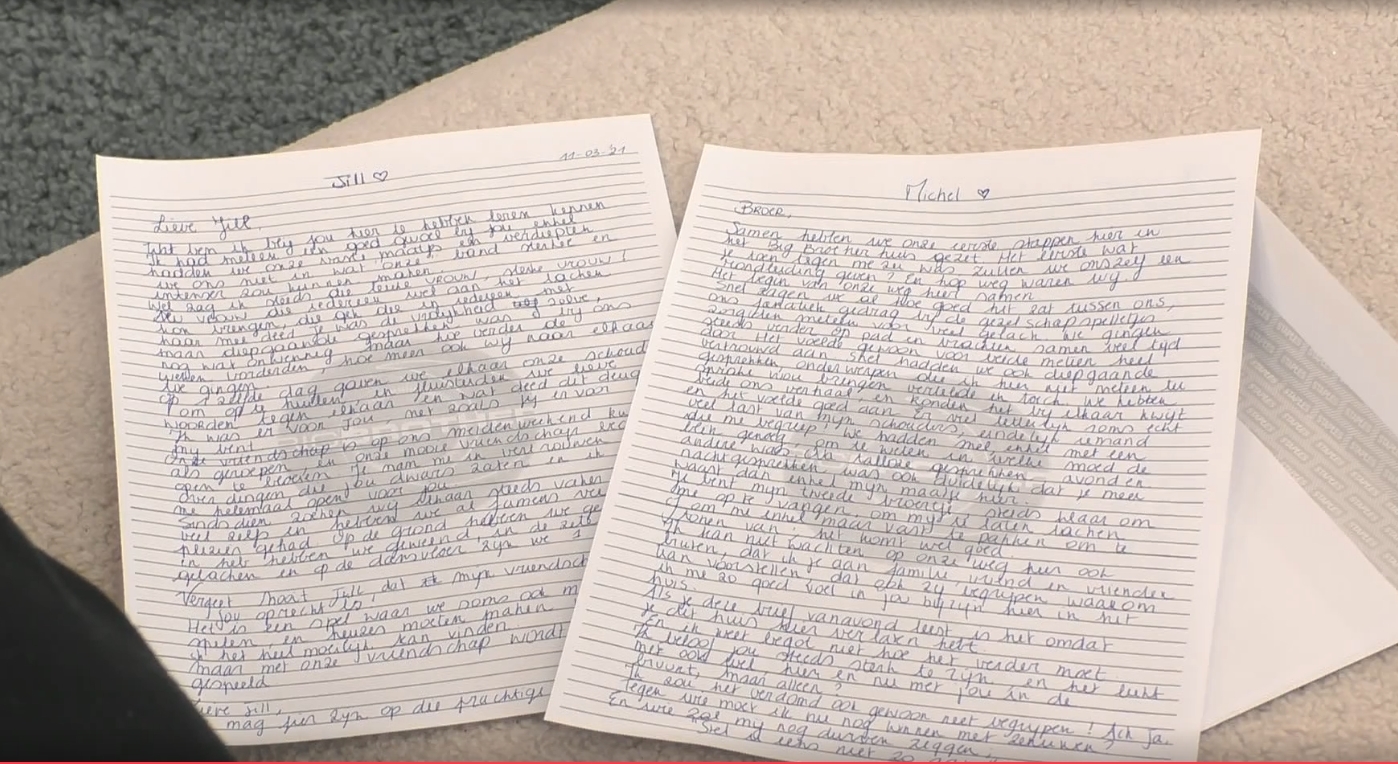 11-03-'21
Jill ♡
Lieve Jill,
Wat ben ik bly jou hier te hebben leren kennen
Ik had meteen een goed gevoel by jou enkel
hadden we onze vaste maatjes en verdiepten
we ons niet in wat onze band sterker en
intenser zou kunnen maken.
Wel zag ik steeds die leuke vrouw, sterke vrouw!
Een vrouw die iedereen wel aan het lachen
kon brengen, die gek die in iedereen met
haar mee deed. Je was de vrolykheid zelve,
maar diepgaande gesprekken was by ons
nog wat onwennig maar hoe verder de
weken vorderden hoe meer ook wy naar elkaar
toe gingen.
Op 1 zelfde dag gaven we elkaar onze schoud
om op te huilen en fluisterden we lieve
woorden tegen elkaar en wat deed dit deug
Ik was er voor jou net zoals jy er voor
my bent
Onze vriendschap is op ons meidenweekend
als geroepen en onze mooie vriendschap
open te bloeien. Je nam me in vertrouwen
over dingen die jou dwars zaten en ik
me helemaal open voor jou
Sinds dien zoeken wij elkaar steeds vaker
veel steun en hebben we al jammens
plezier gehad. Op de grond hebben we ge
in het hebben we geweend, in de zetel
gelachen en op de dansvloer zijn we 1
Vergeet nooit Jill, dat myn vriendsch
jou oprecht is,
Het is een spel waar we soms ook m
spelen en keuzes moeten maken
ik het heel moeilyk kan vinden.
maar met onze vriendschap wordt
gespeeld
Lieve Jill,
mag fier zyn op die prachtige
Michel ♡
BROER,
Samen hebben we onze eerste stappen hier in
het Big Brother huis gezet. Het eerste wat
je toen tegen me zei was zullen we onszelf een
rondleiding geven? En hop weg waren wij.
Het begin van onze weg hier samen
Snel zagen we al hoe goed het zat tussen ons,
ons fanatiek gedrag by de gezelschapspelletjes
zorgden meteen voor veel gelach. We gingen
steeds verder op pad en brachten samen veel tyd
door. Het voelde gewoon voor beide meteen heel
vertrouwd aan. Snel hadden we ook diepgaande
gesprekken, onderwerpen die ik hier niet meteen ter
sprake wou brengen vertelde ik toch. We hebben
beide ons verhaal en konden het by elkaar kwyt
en het voelde goed aan. Er viel letterlijk soms echt
veel last van myn schouders, eindelijk iemand
die me begreep. We hadden snel enkel met een
blik genoeg om te weten in welke moed de
andere was. Na talloze gesprekken, avond en
nachtgesprekken was ook duidelijk dat je meer
waart dan enkel myn maatje hier.
Je bent myn tweede broertje, steeds klaar om
me op te vangen, om my te laten lachen
of om me enkel maar vast te pakken om te
tonen van, het komt wel goed.
Ik kan niet wachten op onze weg hier ook
buiten, dat ik je aan familie, vriend en vrienden
kan voorstellen, dat ook zy begrypen waarom
ik me zo goed voel in jou bijzijn hier in het
huis.
Als je deze brief vanavond leest is het omdat
je dit huis hier verlaten hebt
En ik weet begot niet hoe het verder moet.
Ik beloof jou steeds sterk te zyn, en het lukt
met ook wel hier en nu met jou in de
buurt, maar alleen?
Ik zou het verdomd ook gewoon niet begrypen! Ach ja.
Tegen wie moet ik nu nog kunnen met zenuwen?
En wie zal my nog durven zeggen,
Siel is eens niet zo